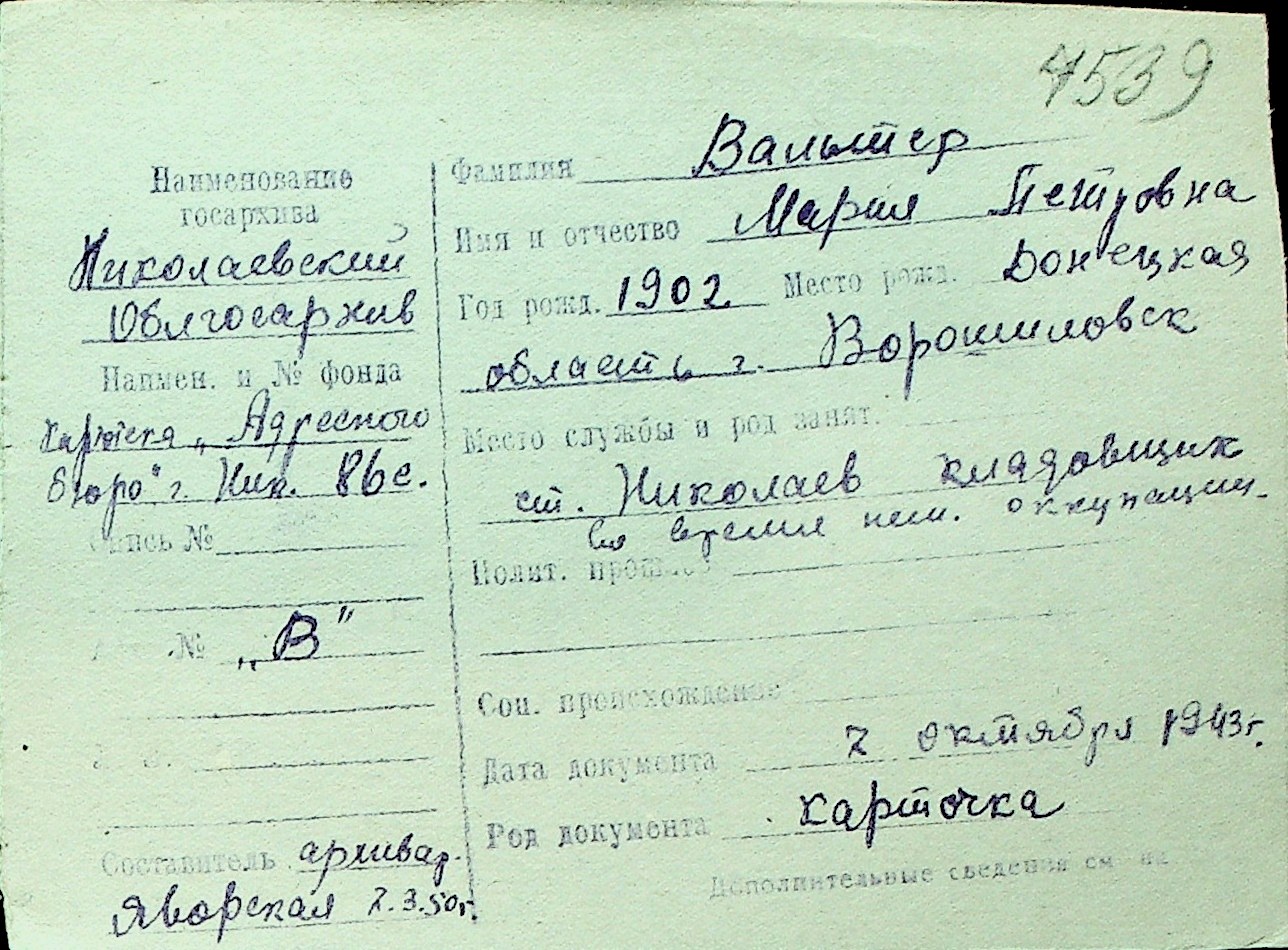 4539
Наименование
госархива
Николаевский
Облгосархив
Наимен. и № фонда
картотека „Адресного
бюро" г. Ник. 86с.
Опись №
№ „В"
Составитель архивар.
Яворская 2.3.50г.
Фамилия Вальтер
Имя и отчество Мария Петровна
Год рожд. 1902 Место рожд. Донецкая
область г. Ворошиловск
Место службы и род занят.
ст. Николаев кладовщик
во время нем. оккупации
Полит. прошлое
Соц. происхождение
Дата документа 2 октября 1943г.
Род документа карточка
Дополнительные сведения см на